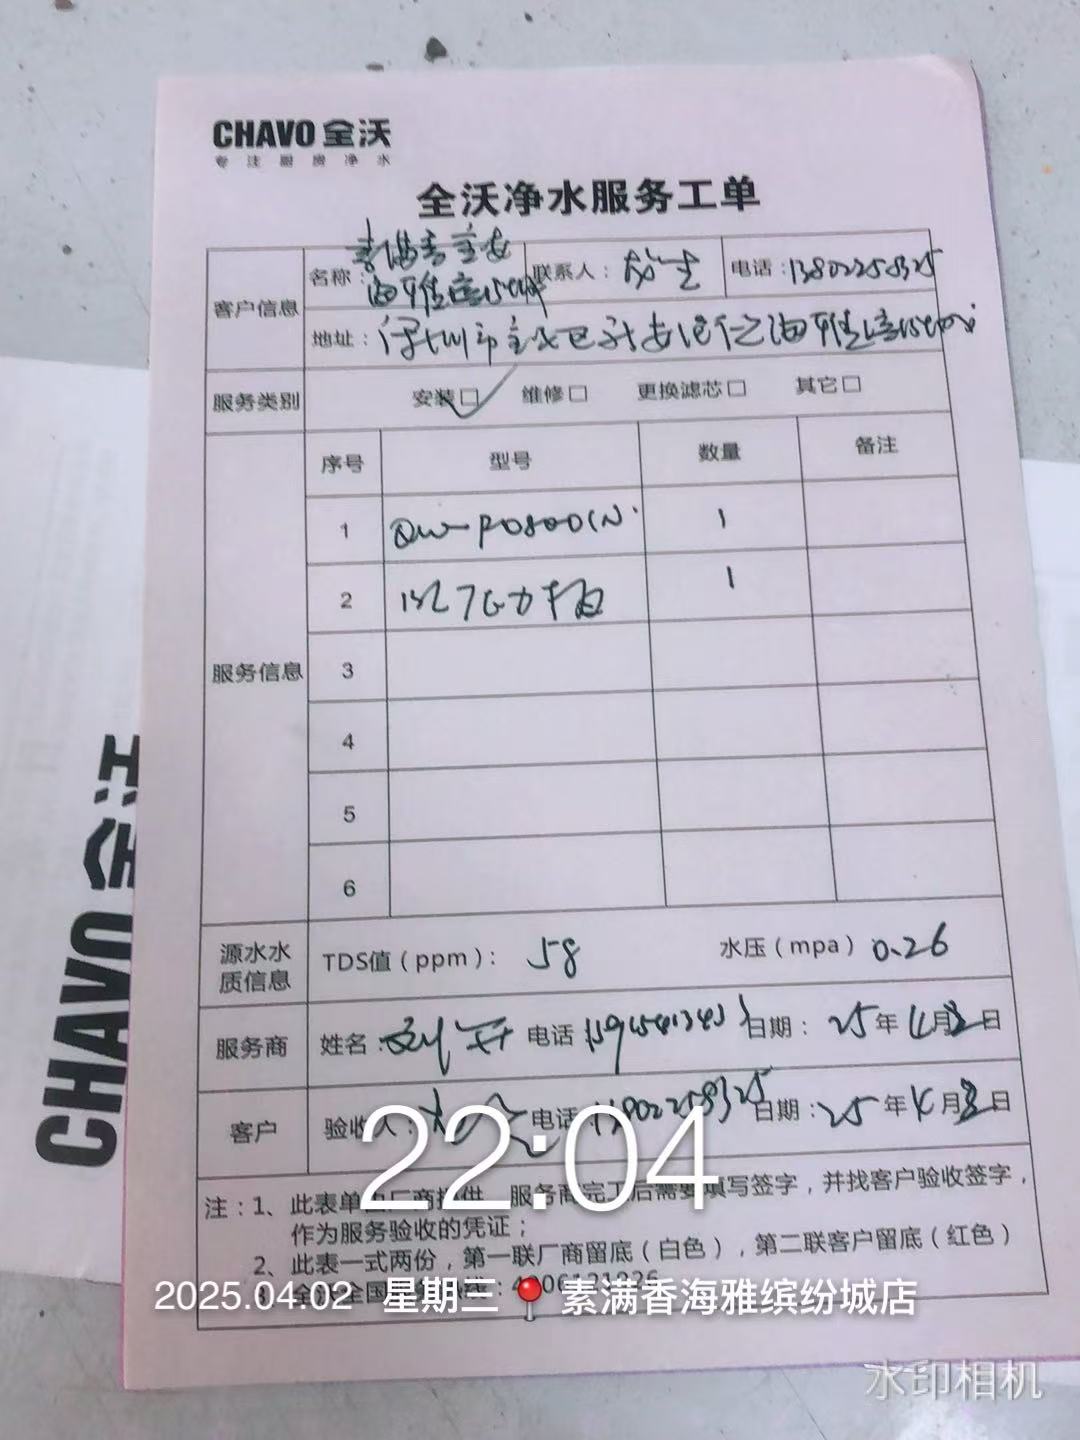 CHAVO 全沃
专注厨房净水
全沃净水服务工单
客户信息
名称：素满香宝安
海雅缤纷城
联系人：龙生
电话：13802258325
地址：深圳市宝安区
服务类别
安装☑ 维修□ 更换滤芯□ 其它□
服务信息
序号 型号 数量 备注
1 QW-RO800(N) 1
2 1
3
4
5
6
源水水质信息
TDS值（ppm）： 58 水压（mpa）0.26
服务商 姓名： 电话 日期： 25年4月2日
客户 验收人： 电话：13802258325 日期：25年4月2日
注：1、此表单由厂商提供，服务商完工后需要填写签字，并找客户验收签字，
作为服务验收的凭证；
2、此表一式两份，第一联厂商留底（白色），第二联客户留底（红色）
3、全沃全国
22:04
2025.04.02 星期三 素满香海雅缤纷城店
水印相机
CHAVO 全沃